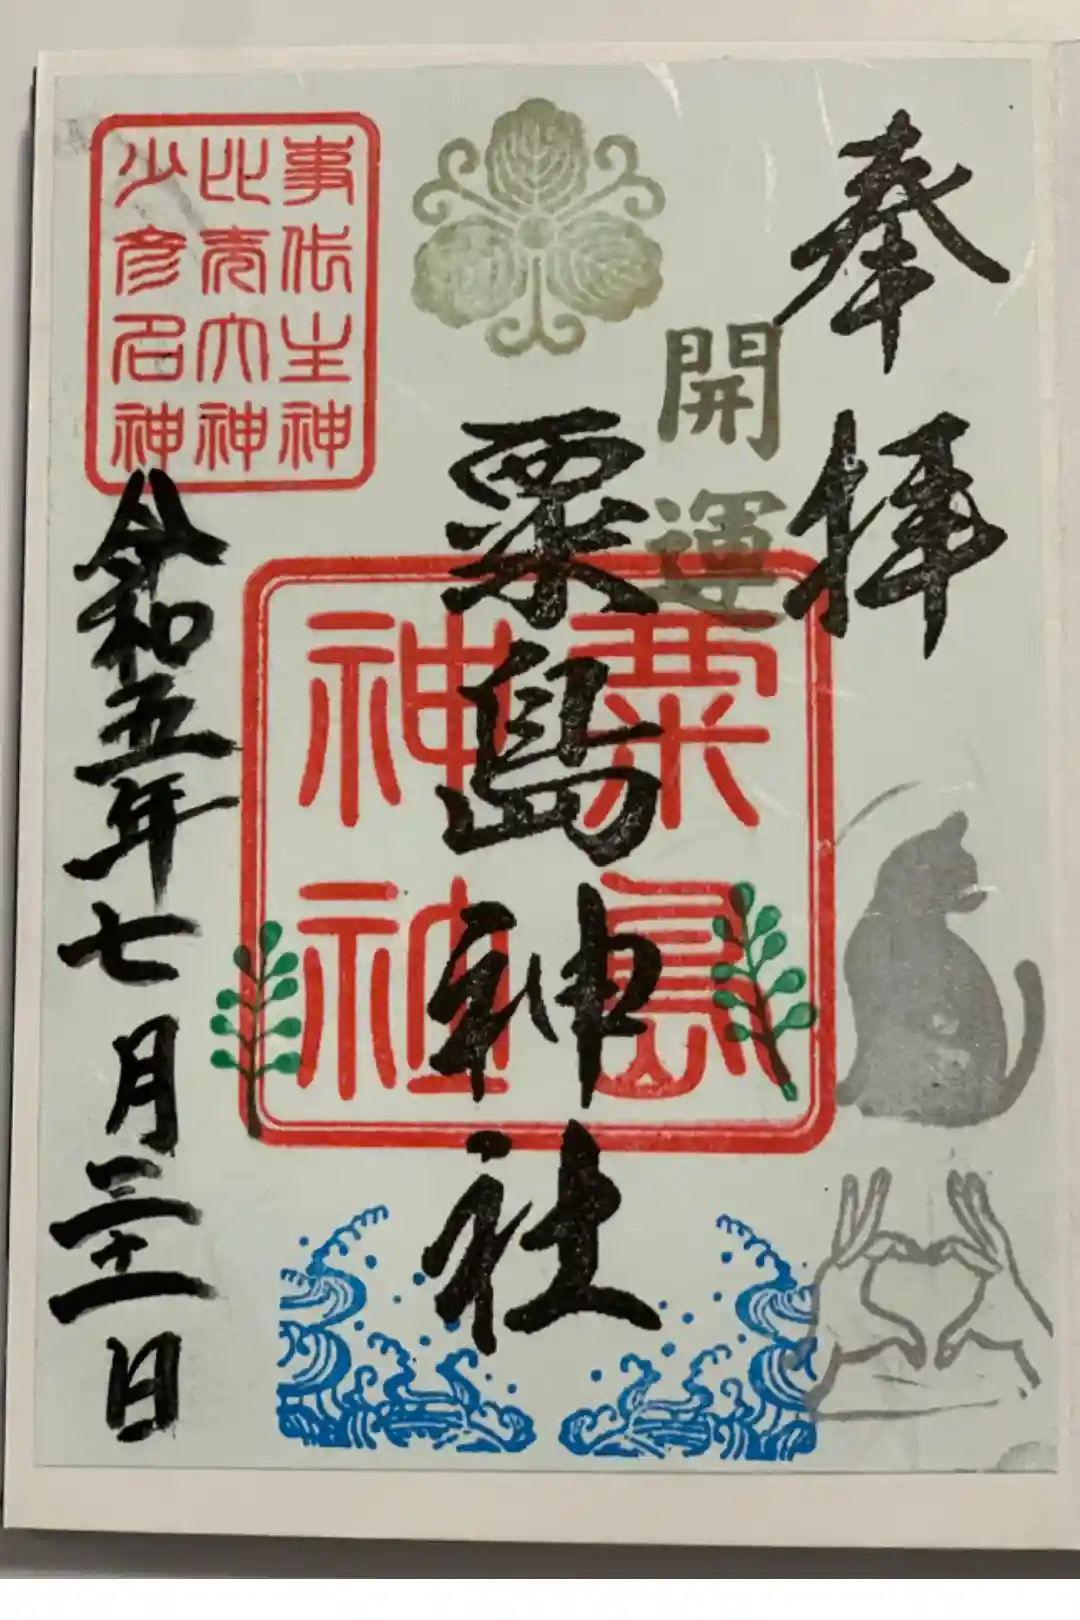 奉拝
開運
粟島神社
粟島
神社
事代主神
比売大神
少彦名神
令和五年七月三十一日